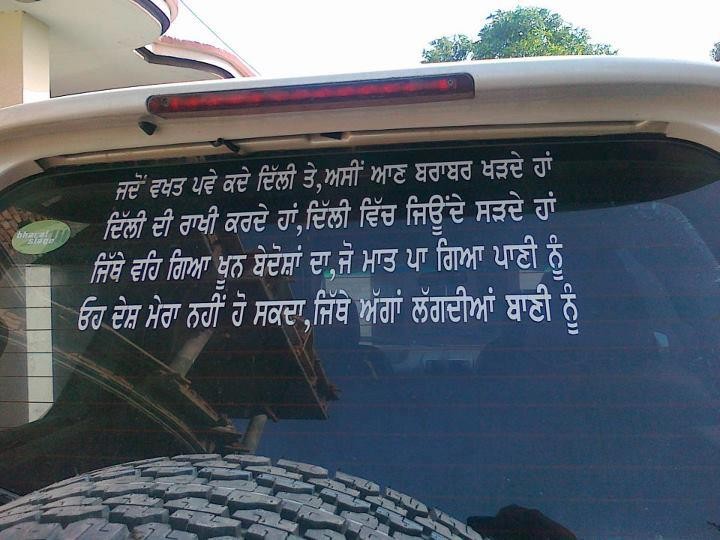 ਜਦੋਂ ਵਖਤ ਪਵੇ ਕਦੇ ਦਿੱਲੀ ਤੇ,ਅਸੀਂ ਆਣ ਬਰਾਬਰ ਖੜਦੇ ਹਾਂ
ਦਿੱਲੀ ਦੀ ਰਾਖੀ ਕਰਦੇ ਹਾਂ,ਦਿੱਲੀ ਵਿੱਚ ਜਿਊਂਦੇ ਸੜਦੇ ਹਾਂ
ਜਿੱਥੇ ਵਹਿ ਗਿਆ ਖੂਨ ਬੇਦੋਸ਼ਾਂ ਦਾ,ਜੋ ਮਾਤ ਪਾ ਗਿਆ ਪਾਣੀ ਨੂੰ
ਓਹ ਦੇਸ਼ ਮੇਰਾ ਨਹੀਂ ਹੋ ਸਕਦਾ,ਜਿੱਥੇ ਅੱਗਾਂ ਲੱਗਦੀਆਂ ਬਾਣੀ ਨੂੰ
bharat
stage